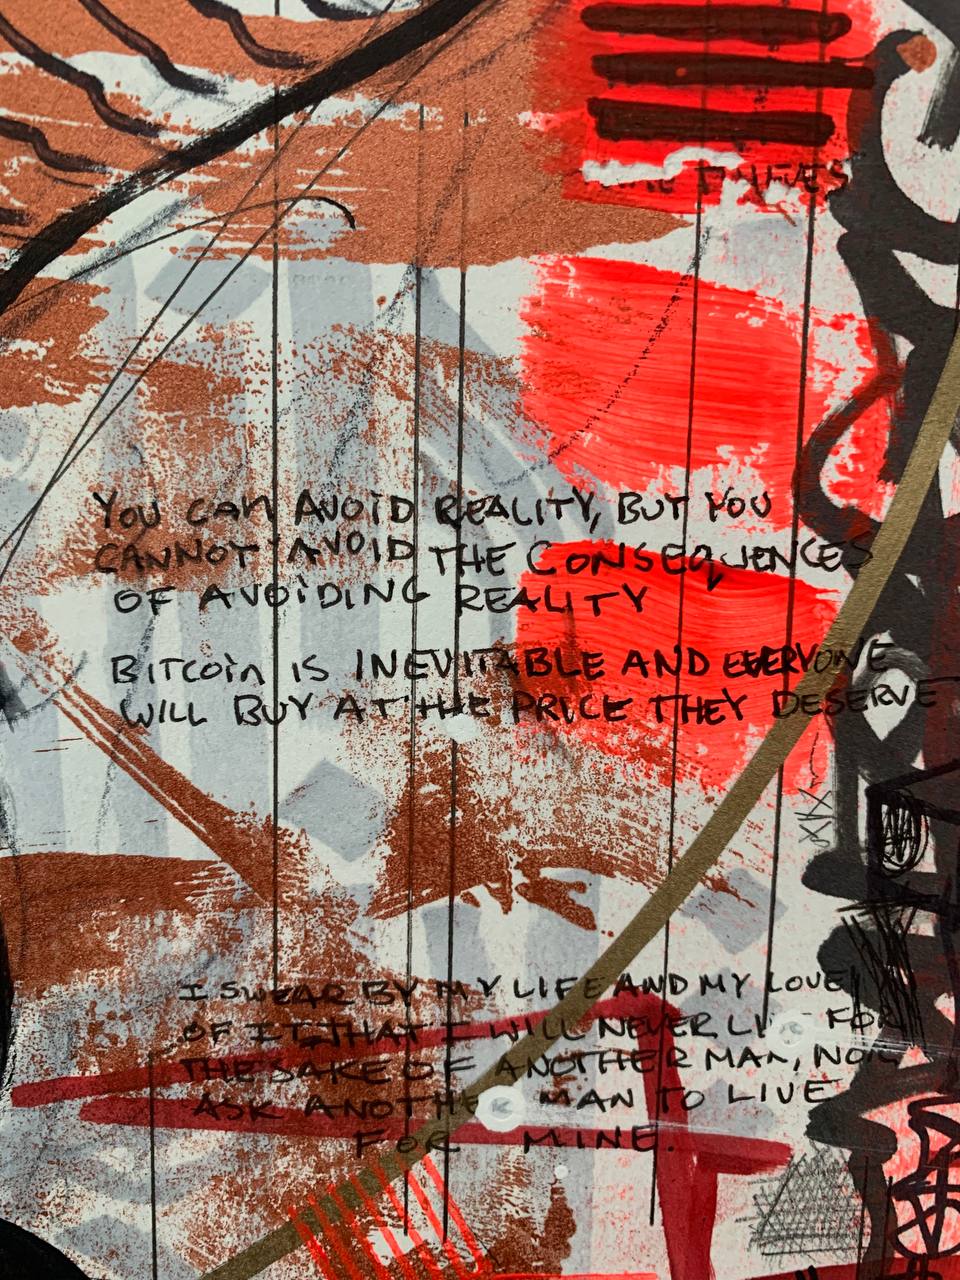 THIEVES
YOU CAN AVOID REALITY, BUT YOU
CANNOT AVOID THE CONSEQUENCES
OF AVOIDING REALITY
BITCOIN IS INEVITABLE AND EVERYONE
WILL BUY AT THE PRICE THEY DESERVE
I SWEAR BY MY LIFE AND MY LOVE
OF IT THAT I WILL NEVER LIVE FOR
THE SAKE OF ANOTHER MAN, NOR
ASK ANOTHER MAN TO LIVE
FOR MINE.